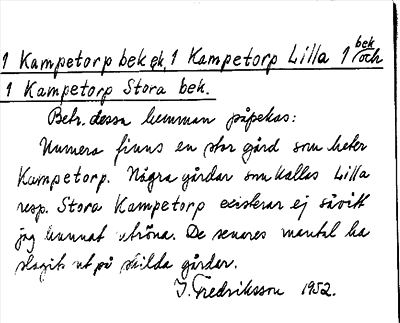 1 Kampetorp bek gk, 1 Kampetorp Lilla 1 bek och
1 Kampetorp Stora bek.
Betr. dessa hemman påpekas:
Numera finns en stor gård som heter
Kampetorp. Några gårdar som kallas Lilla
resp. Stora Kampetorp existerar ej såvitt
jag kunnat utröna. De senares mantal ha
slagits ut på skilda gårdar.
J. Fredriksson 1952.